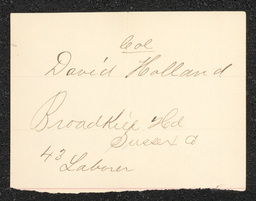 Col
David Holland
Broadkiln Hd
Sussex Co
43
Laborer